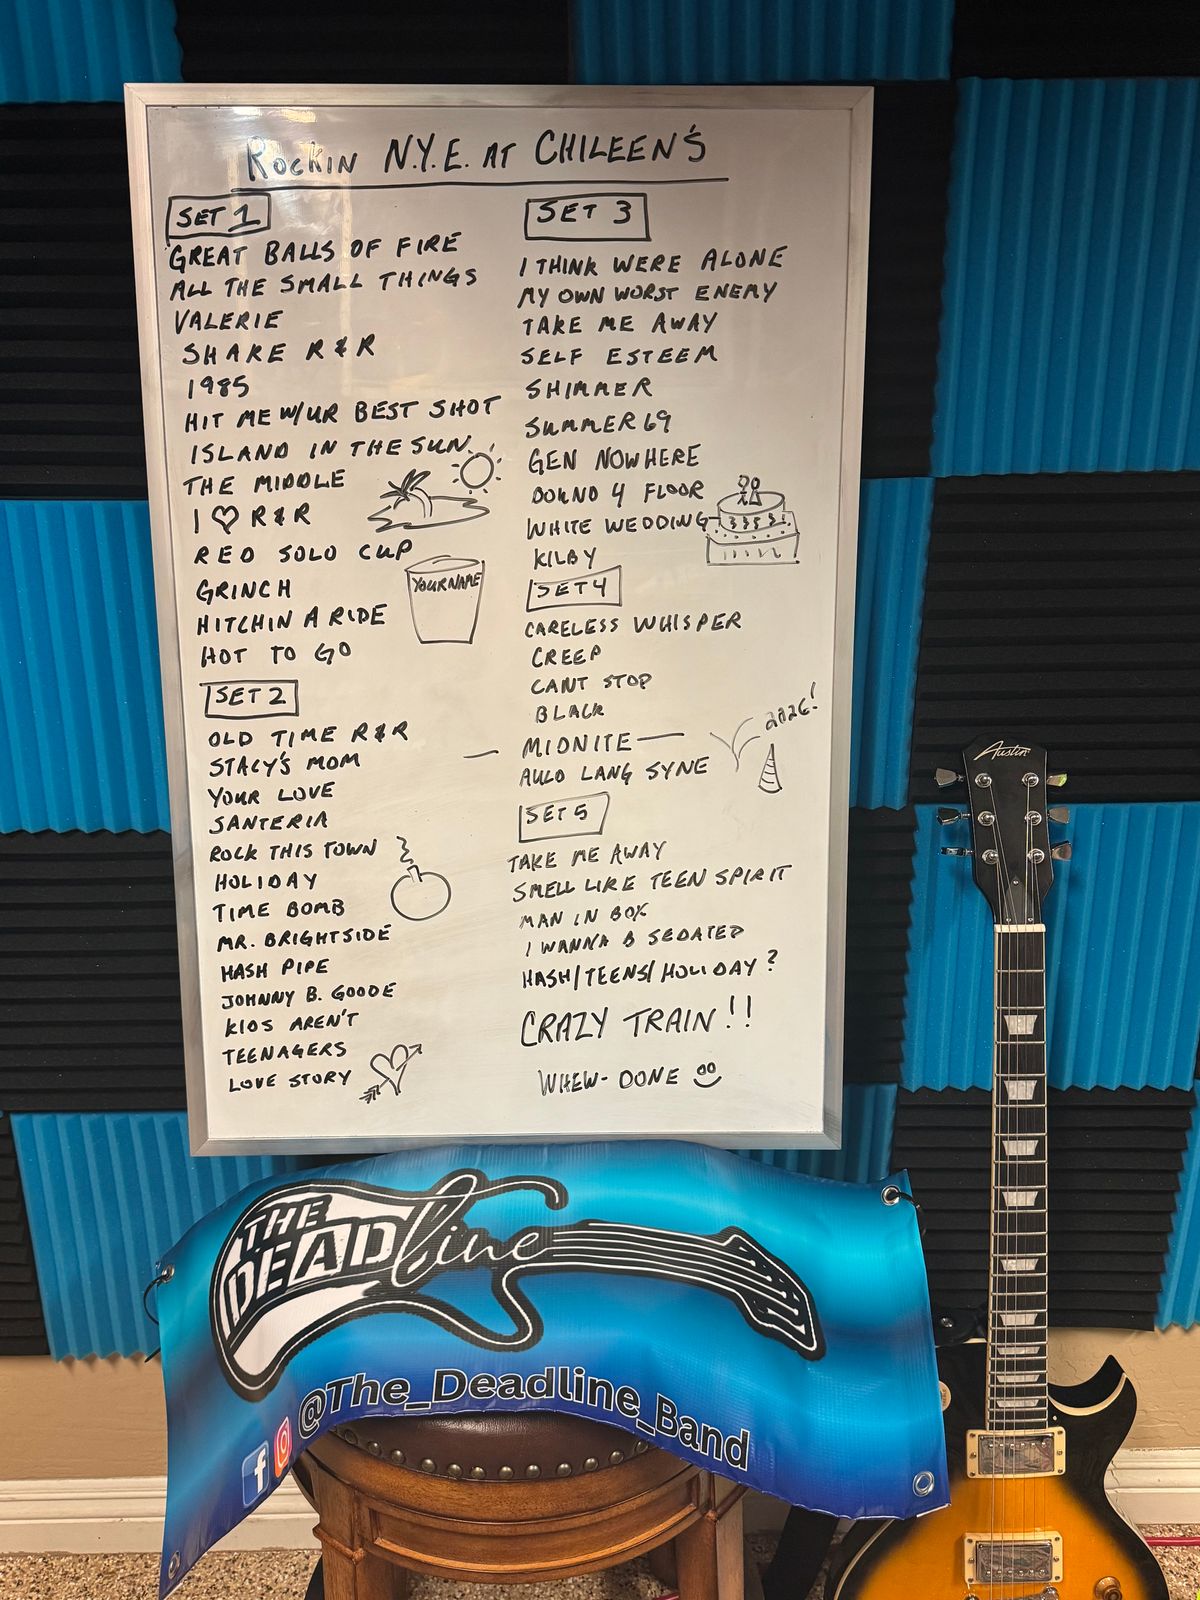 Rockin N.Y.E. AT CHILEEN'S
SET 1
GREAT BALLS OF FIRE
ALL THE SMALL THINGS
VALERIE
SHAKE R & R
1985
HIT ME W/UR BEST SHOT
ISLAND IN THE SUN
THE MIDDLE
I ♡ R & R
RED SOLO CUP
YOUR NAME
GRINCH
HITCHIN A RIDE
HOT TO GO
SET 2
OLD TIME R & R
STACY'S MOM
YOUR LOVE
SANTERIA
ROCK THIS TOWN
HOLIDAY
TIME BOMB
MR. BRIGHTSIDE
HASH PIPE
JOHNNY B. GOODE
KIDS AREN'T
TEENAGERS
LOVE STORY
SET 3
I THINK WERE ALONE
MY OWN WORST ENEMY
TAKE ME AWAY
SELF ESTEEM
SHIMMER
SUMMER 69
GEN NOWHERE
DOWND 4 FLOOR
WHITE WEDDING
KILBY
SET 4
CARELESS WHISPER
CREEP
CANT STOP
BLACK
— MIDNITE —
2026!
AULD LANG SYNE
SET 5
TAKE ME AWAY
SMELL LIKE TEEN SPIRIT
MAN IN BOX
I WANNA B SEDATED
HASH/TEENS/HOLIDAY?
CRAZY TRAIN!!
WHEW- DONE
Austin
THE
DEADline
@The_Deadline_Band